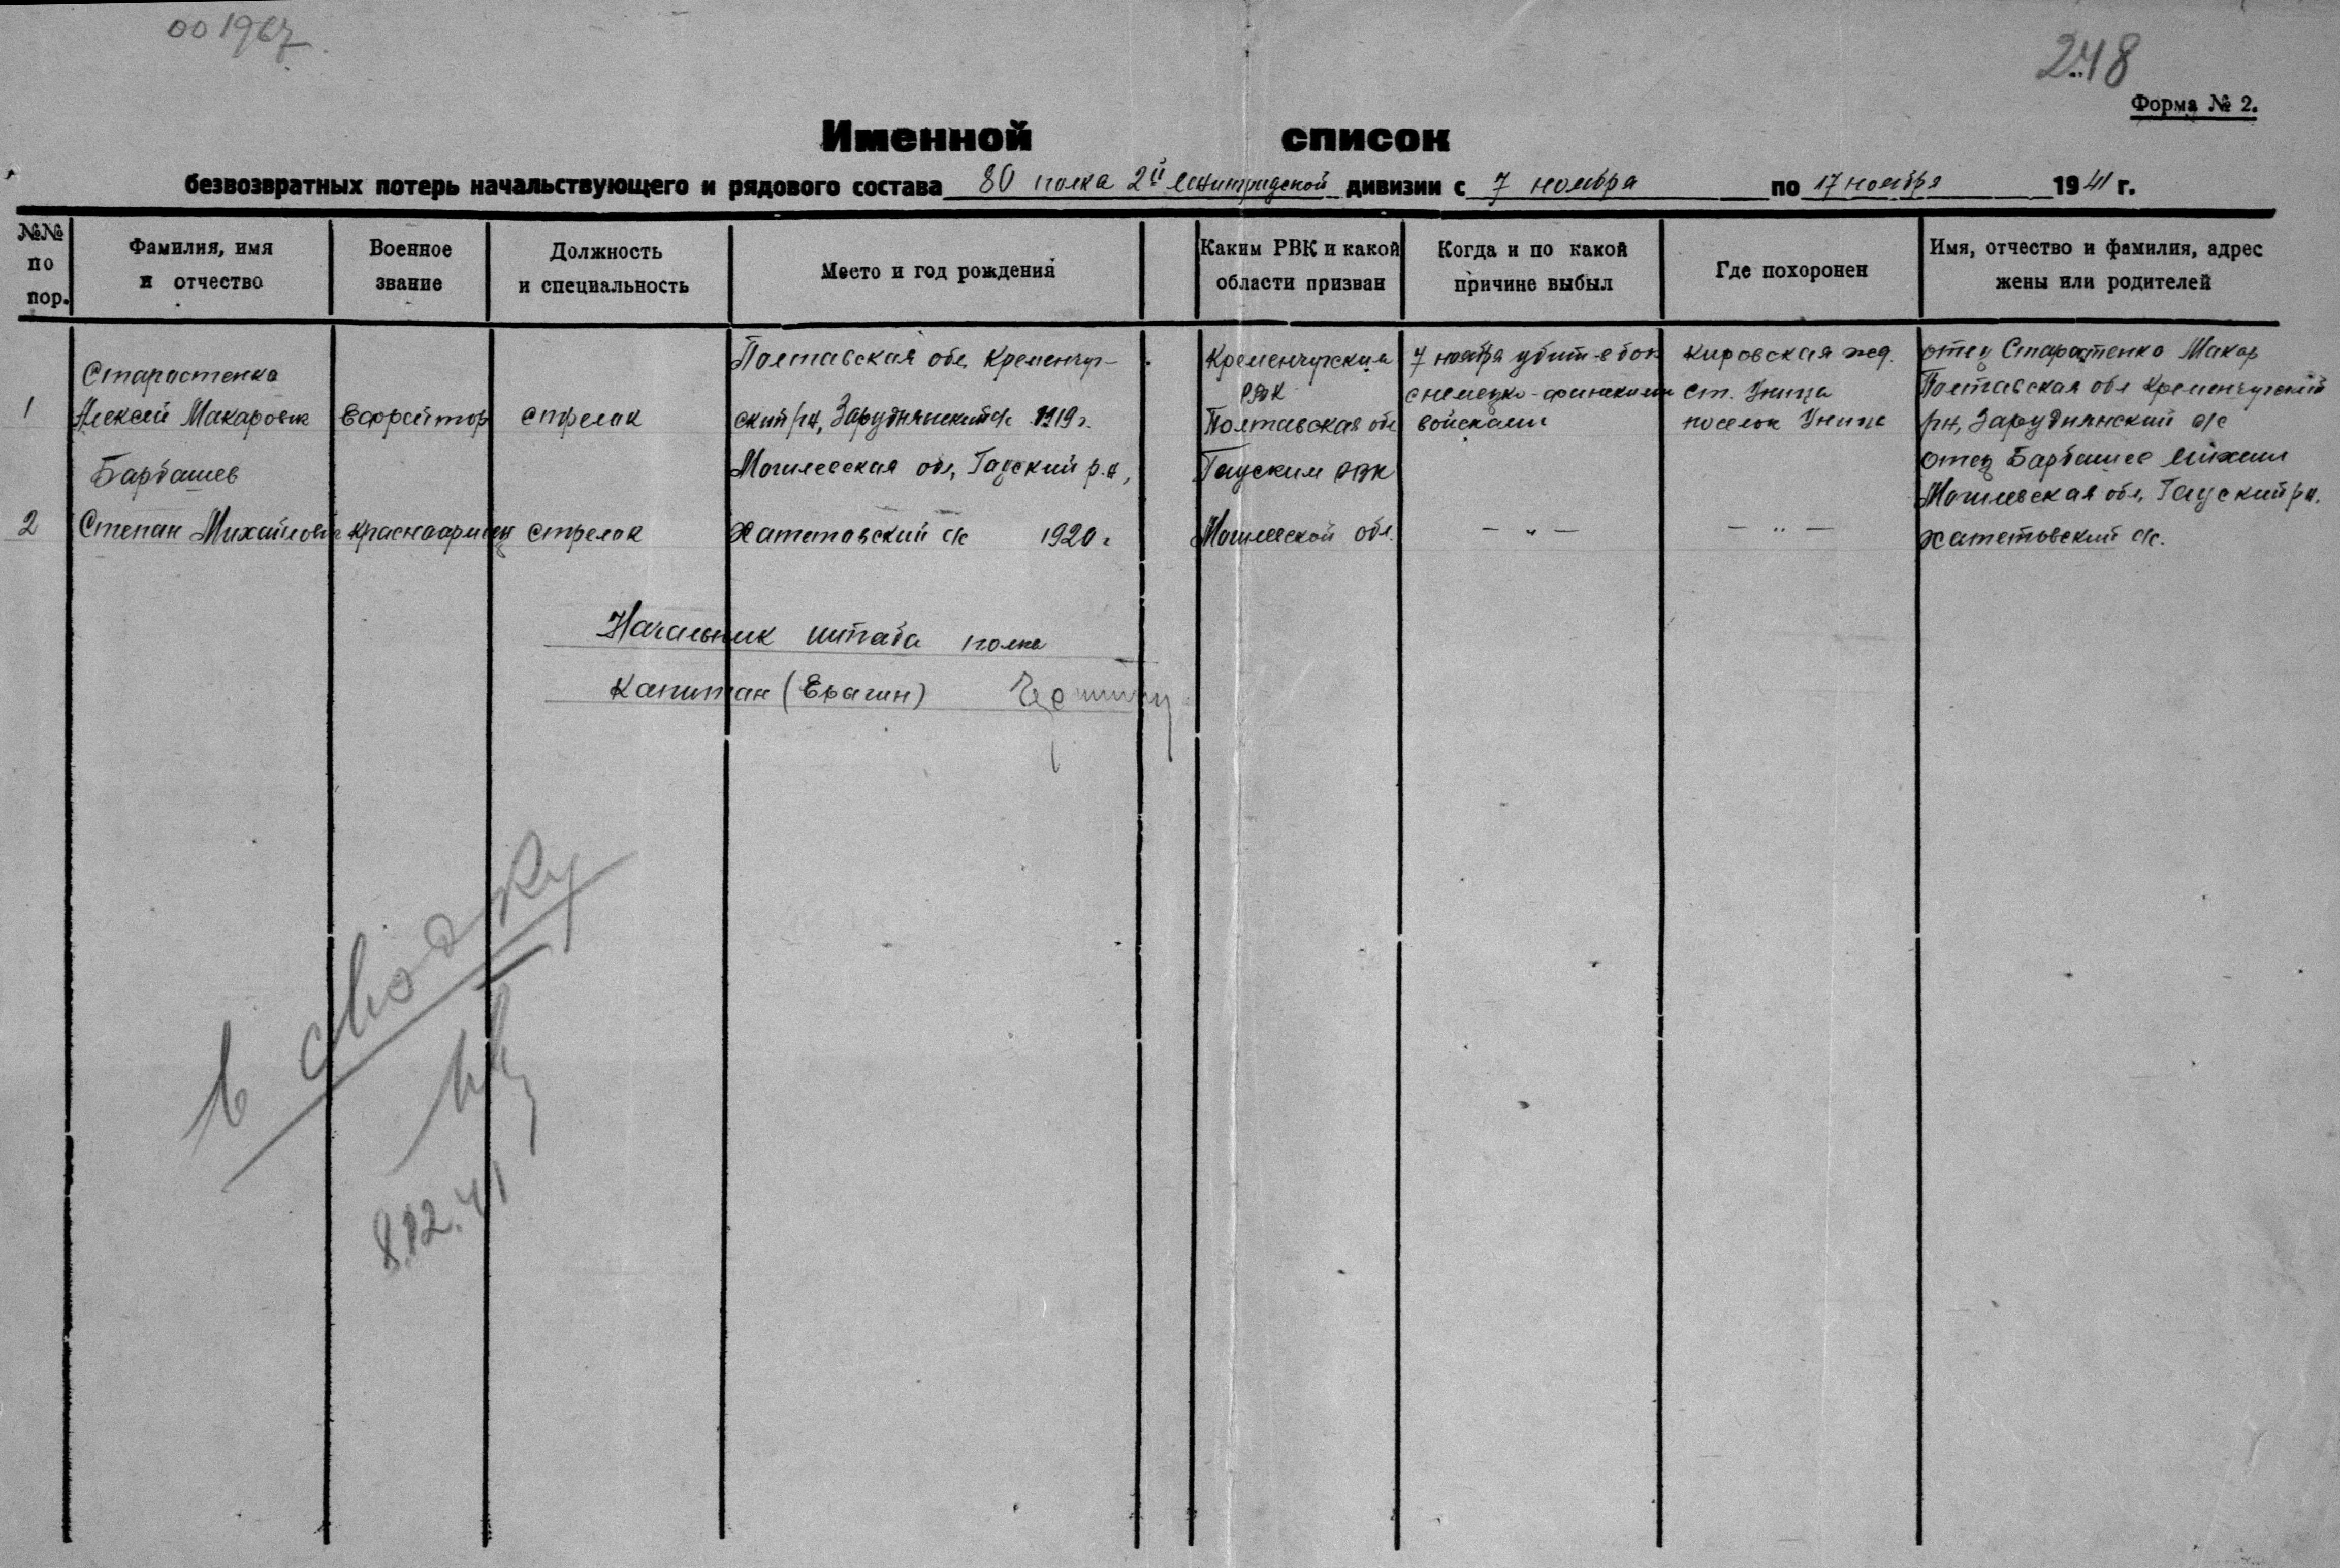 001967.
248
Форма № 2.
Именной список
безвозвратных потерь начальствующего и рядового состава 80 полка 2й Ленинградской дивизии с 7 ноября по 17 ноября 1941 г.
№№ по пор.
Фамилия, имя и отчество
Военное звание
Должность и специальность
Место и год рождения
Каким РВК и какой области призван
Когда и по какой причине выбыл
Где похоронен
Имя, отчество и фамилия, адрес жены или родителей
1
Старостенко
Алексей Макарович
Ефрейтор
стрелок
Полтавская обл, Кременчуг-
ский р-н, Заруднянский с/с 1919 г.
Кременчужским
РВК
Полтавская обл
7 ноября убит в бою
с немецко-финскими
войсками
Кировская жд.
ст. Уница
поселок Уница
отец Старостенко Макар
Полтавская обл Кременчугский
рн, Заруднянский с/с
2
Барбашев
Степан Михайлович
красноармеец
стрелок
Могилевская обл, Гауский р.н,
Хатетовский с/с 1920 г
Гауским РВК
Могилевской обл.
— " —
— " —
отец Барбашев Михаил
Могилевская обл, Гауский рн.
хатетовский с/с.
Начальник штаба полка
Капитан (Ерагин)
В сводку
8.12.41